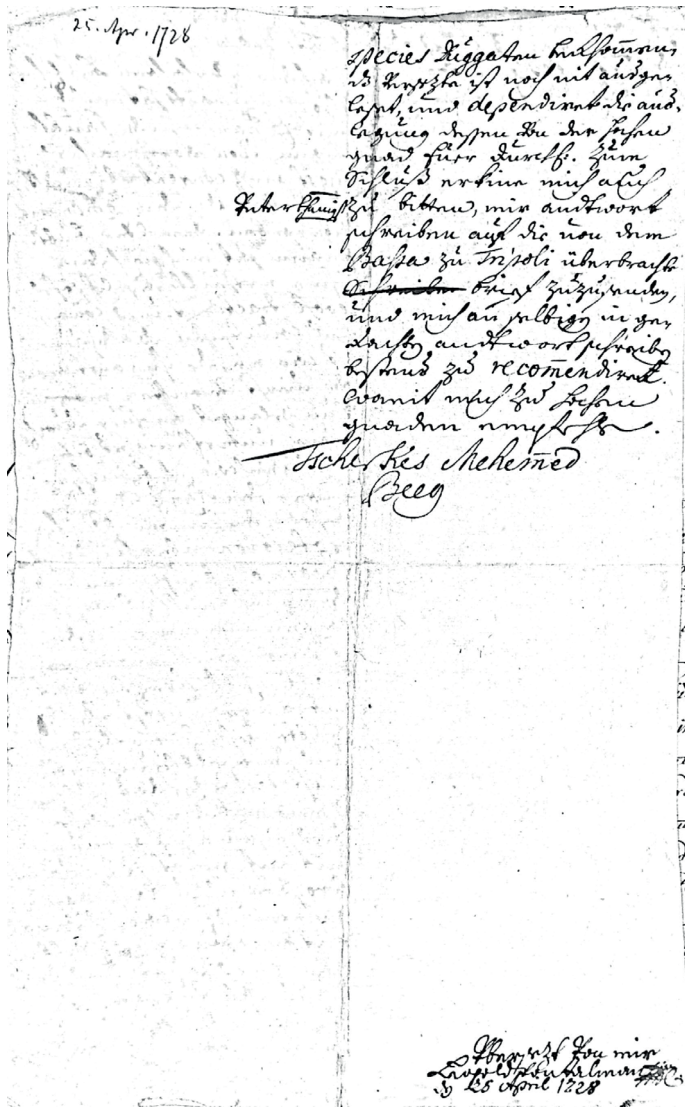 25. Apr. 1728
species Duggaten bekhommen,
dz Versezte ist noch nit ausge-
leset, und dependiret die aus-
lezung dessen von der hohen
gnad Euer Durchl. Zum
Schluß erkine mich auch
Unterthänigst zu bitten, mir andtwort
schreiben auf die von dem
Bassa zu Tripoli überbrachte
Schreiben brief zuzusenden,
und mich an selbigen in ge-
dachten andtwort schreiben
bestens zu recommendiren.
womit mich zu hohen
gnaden empfehle.
Tscherkes Mehemed
Beeg
Übersezt von mir
Leopold
25 April 1728